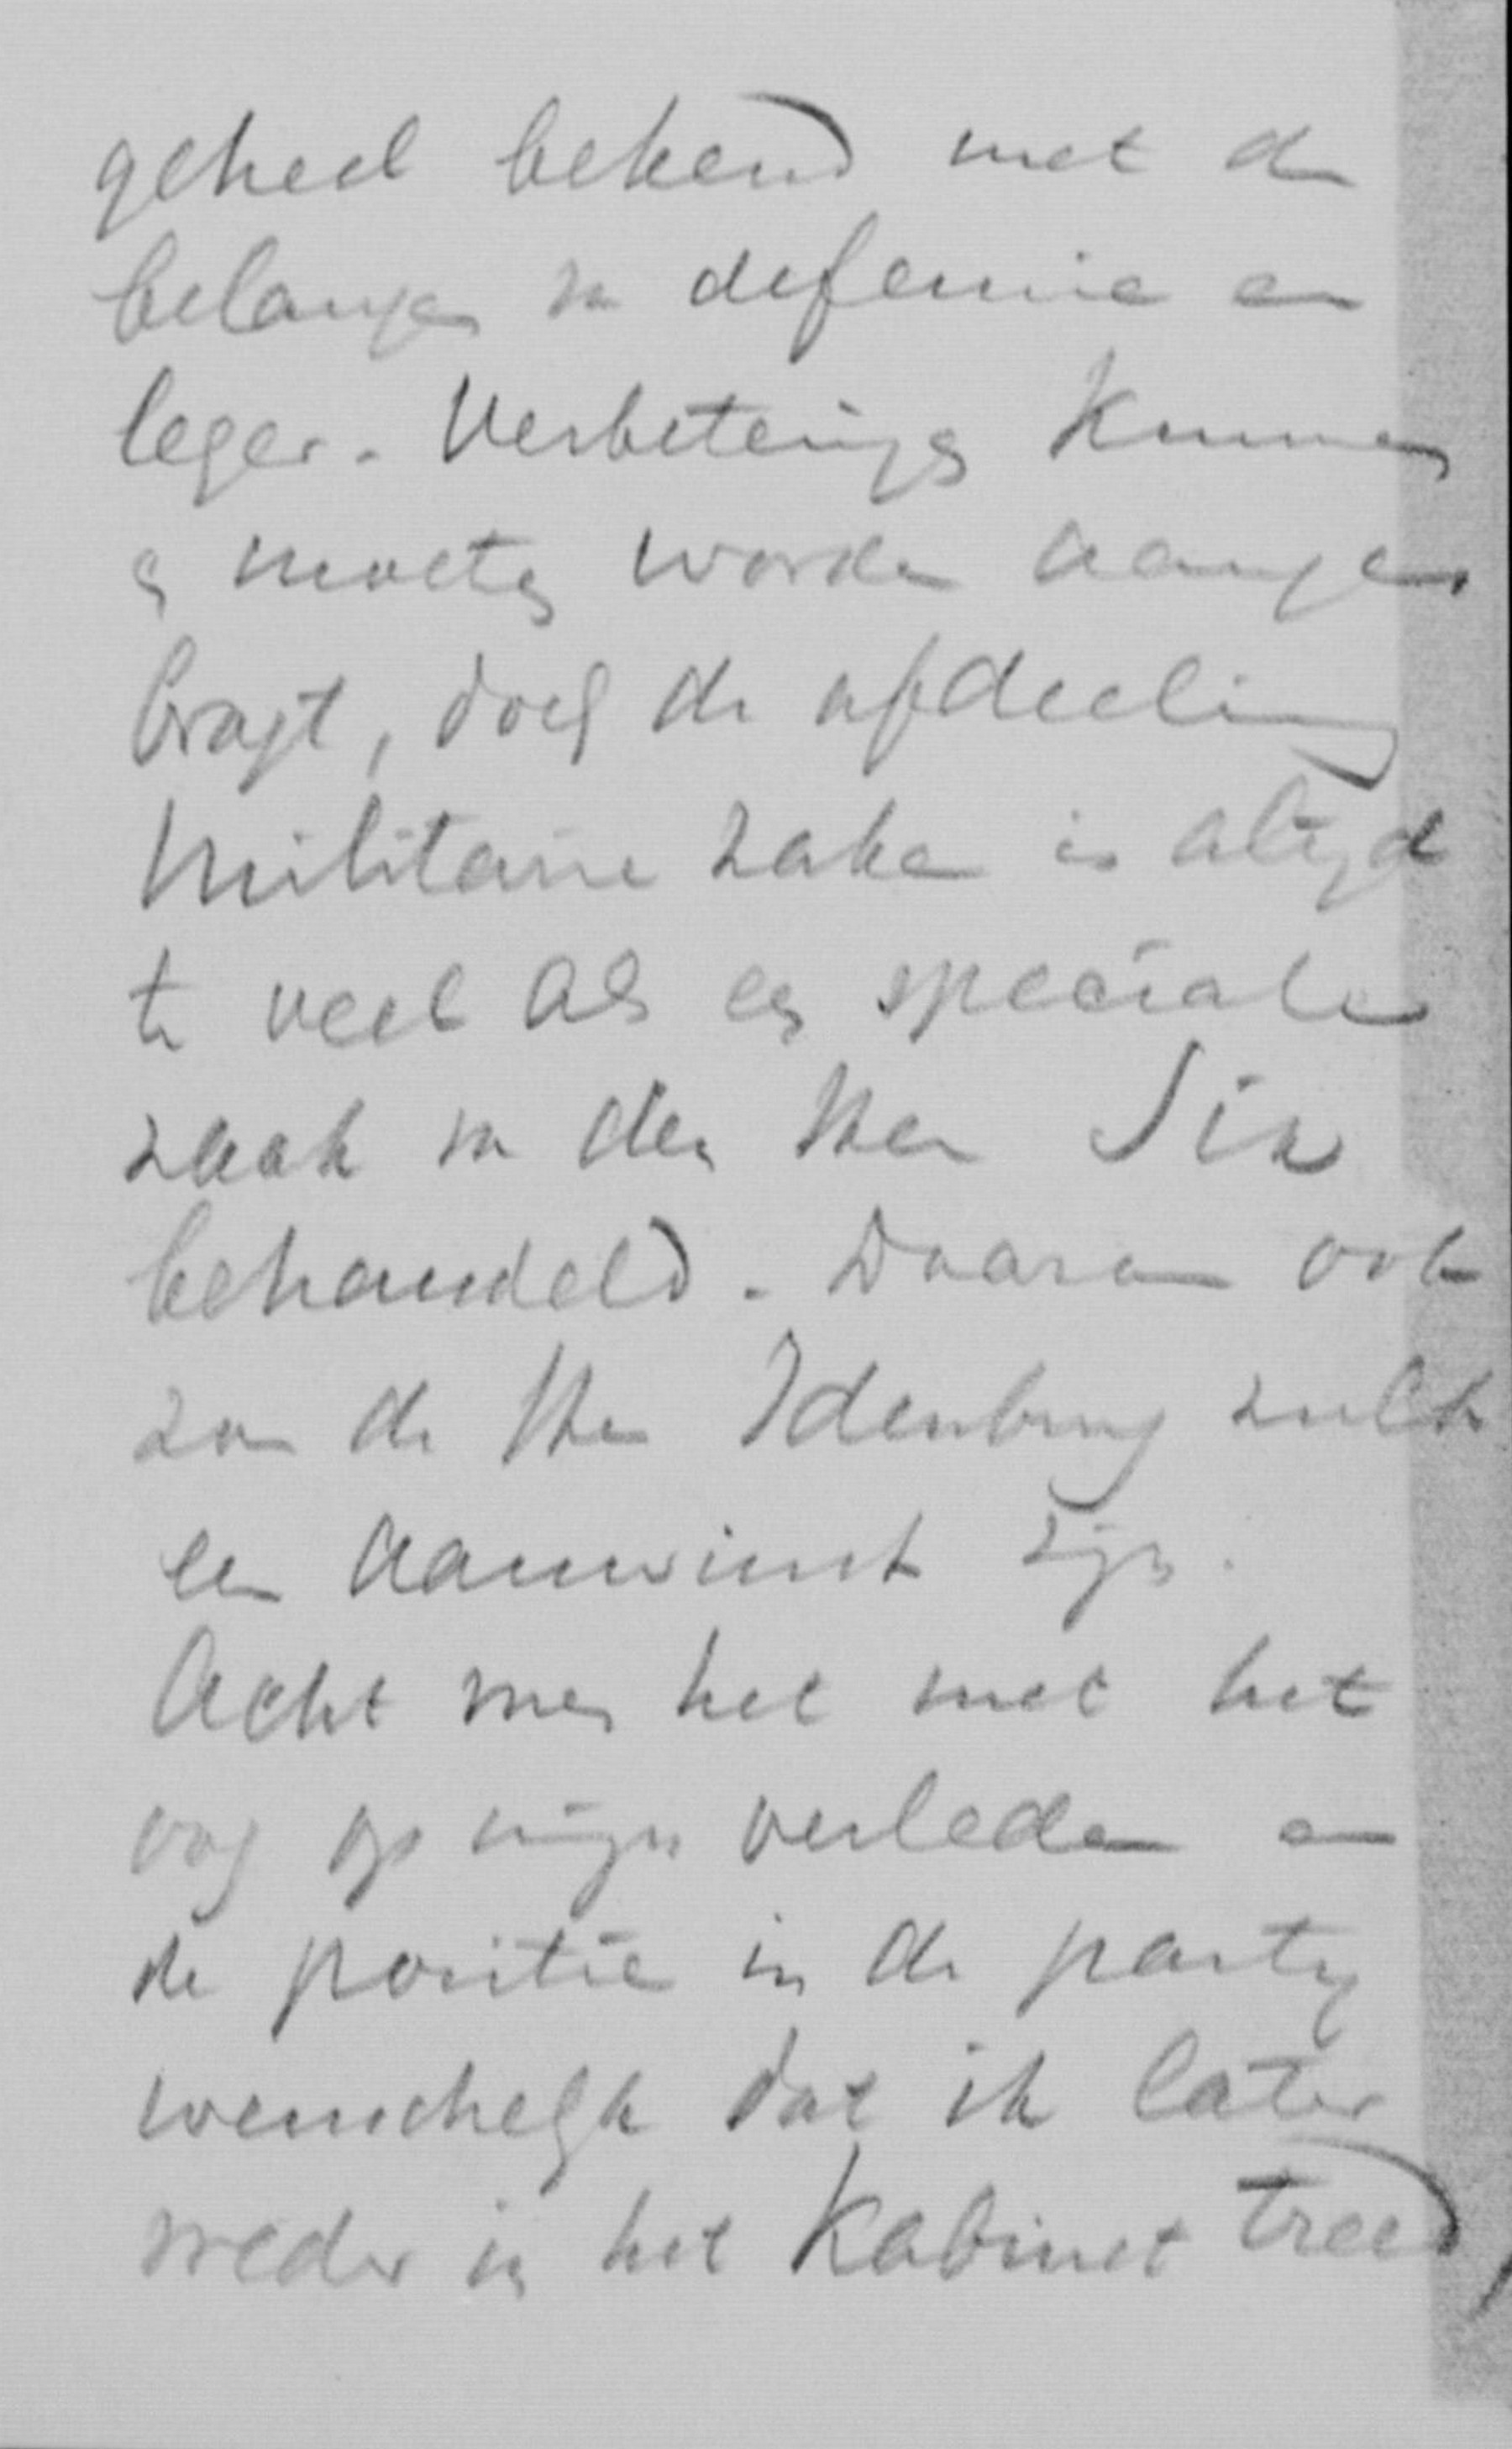 geheel bekend met de
belangen van defensie en
leger. Verbeteringen kunnen
en moeten worden aange-
bragt, doch de afdeeling
Militaire zaken is altijd
te veel als een speciale
zaak van den Heer Six
behandeld. Daarom ook
zou de Heer Idenburg zulk
een aanwinst zijn.
Acht men het met het
oog op mijn verleden en
de positie in de partij
wenschelijk dat ik later
weder in het Kabinet treed,